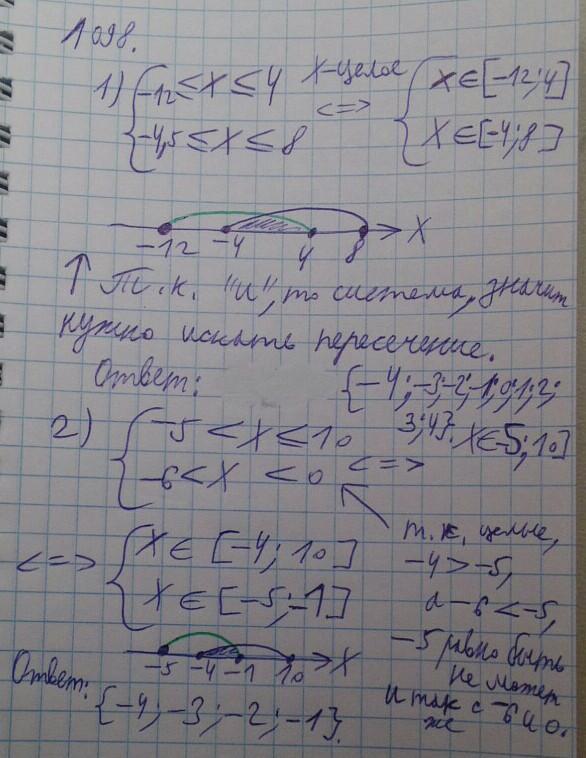 1098.
1) { -12 ≤ x ≤ 4   x-целое   <=>   { x ∈ [-12; 4]
-4,5 ≤ x ≤ 8   x ∈ [-4; 8]
-12 -4 4 8 x
↑ Т.к. "и", то система, значит
нужно искать пересечение.
Ответ: {-4; -3; -2; -1; 0; 1; 2;
3; 4}.
2) { -5 < x ≤ 10   x ∈ -5; 10]
-6 < x < 0   <=>
т.к. целые,
-4 > -5,
а -6 < -5,
-5 равно быть
не может
и так с -6 и 0.
же
<=> { x ∈ [-4; 10]
x ∈ [-5; -1]
-5 -4 -1 10 x
Ответ:
{-4; -3; -2; -1}.